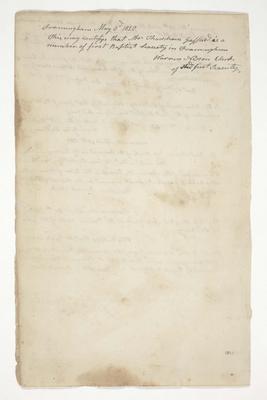 Framingham May 5th 1825.
This may certify that Mr. Christian is a
member of first Baptist Society in Framingham
Warren Nixon Clerk.
of the first Society,